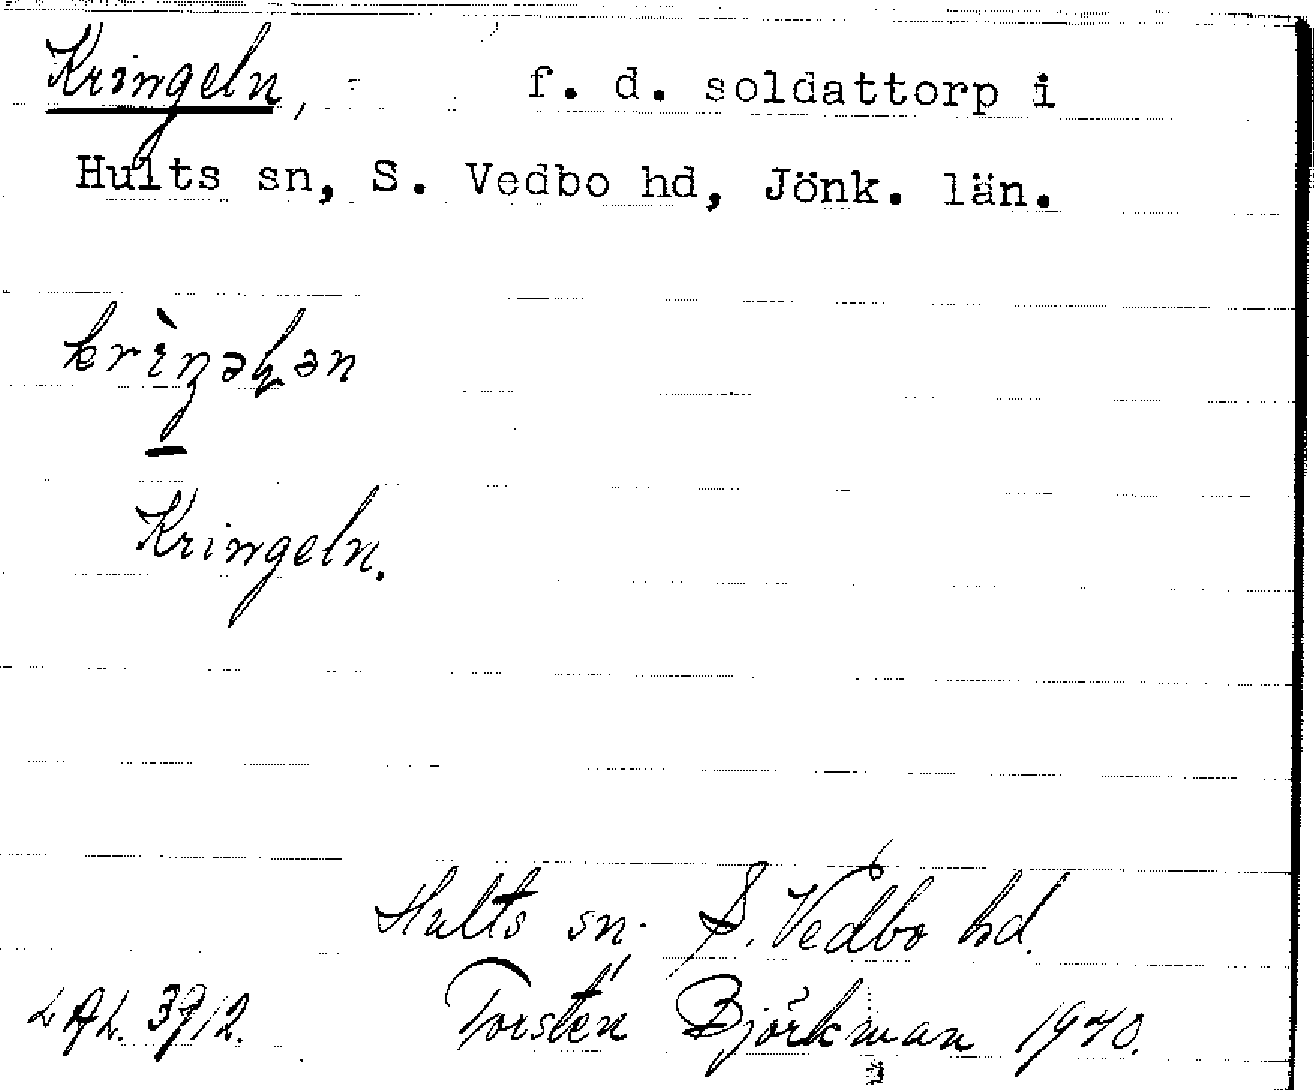 Kringeln, f. d. soldattorp i
Hults sn, S. Vedbo hd, Jönk. län.
Kringeln.
Hults sn. S. Vedbo hd.
LAL. 3912. Torsten Björkman 1940.